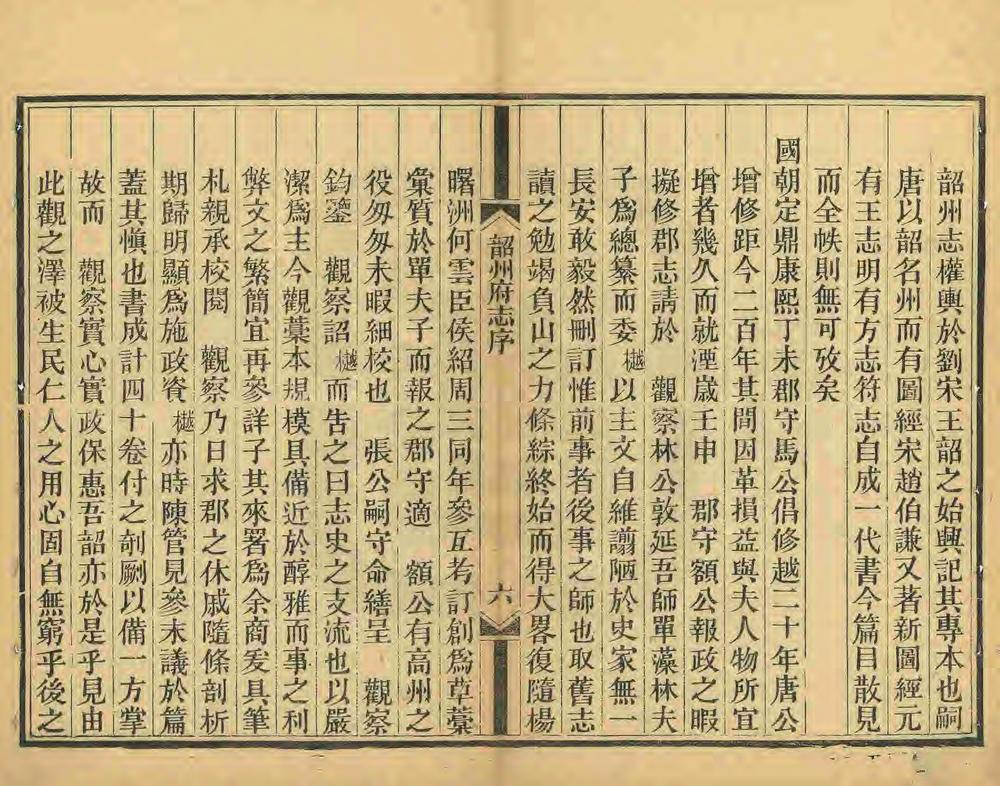 韶州志權輿於劉宋王韶之始興記其專本也嗣
唐以韶名州而有圖經宋趙伯謙又著新圖經元
有王志明有方志符志自成一代書今篇目散見
而全帙則無可攷矣
國朝定鼎康熙丁未郡守馬公倡修越二十年唐公
增修距今二百年其間因革損益與夫人物所宜
增者幾久而就湮歲壬申 郡守額公報政之暇
擬修郡志請於 觀察林公敦延吾師單藻林夫
子為總纂而委樾以主文自維譾陋於史家無一
長安敢毅然刪訂惟前事者後事之師也取舊志
讀之勉竭負山之力條綜終始而得大畧復隨楊
韶州府志序 六
曙洲何雲臣侯紹周三同年參互考訂創為草藁
彙質於單夫子而報之郡守適 額公有高州之
役匆匆未暇細校也 張公嗣守命繕呈 觀察
鈞鑒 觀察詔樾而告之曰志史之支流也以嚴
潔為主今觀藁本規模具備近於醇雅而事之利
弊文之繁簡宜再參詳子其來署為余商爰具筆
札親承校閱 觀察乃日求郡之休戚隨條剖析
期歸明顯為施政資樾亦時陳管見參末議於篇
蓋其慎也書成計四十卷付之剞劂以備一方掌
故而 觀察實心實政保惠吾韶亦於是乎見由
此觀之澤被生民仁人之用心固自無窮乎後之